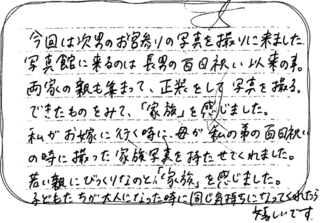 今回は次男のお宮参りの写真を撮りに来ました。
写真館に来るのは長男の百日祝い以来の事。
両家の親も集まって、正装をして写真を撮る。
できたものをみて、「家族」を感じました。
私がお嫁に行く時に、母が私の弟の百日祝い
の時に撮った家族写真を持たせてくれました。
若い親にびっくりなのと、「家族」を感じました。
子どもたちが大人になった時に同じ気持ちになってくれたら
嬉しいです。